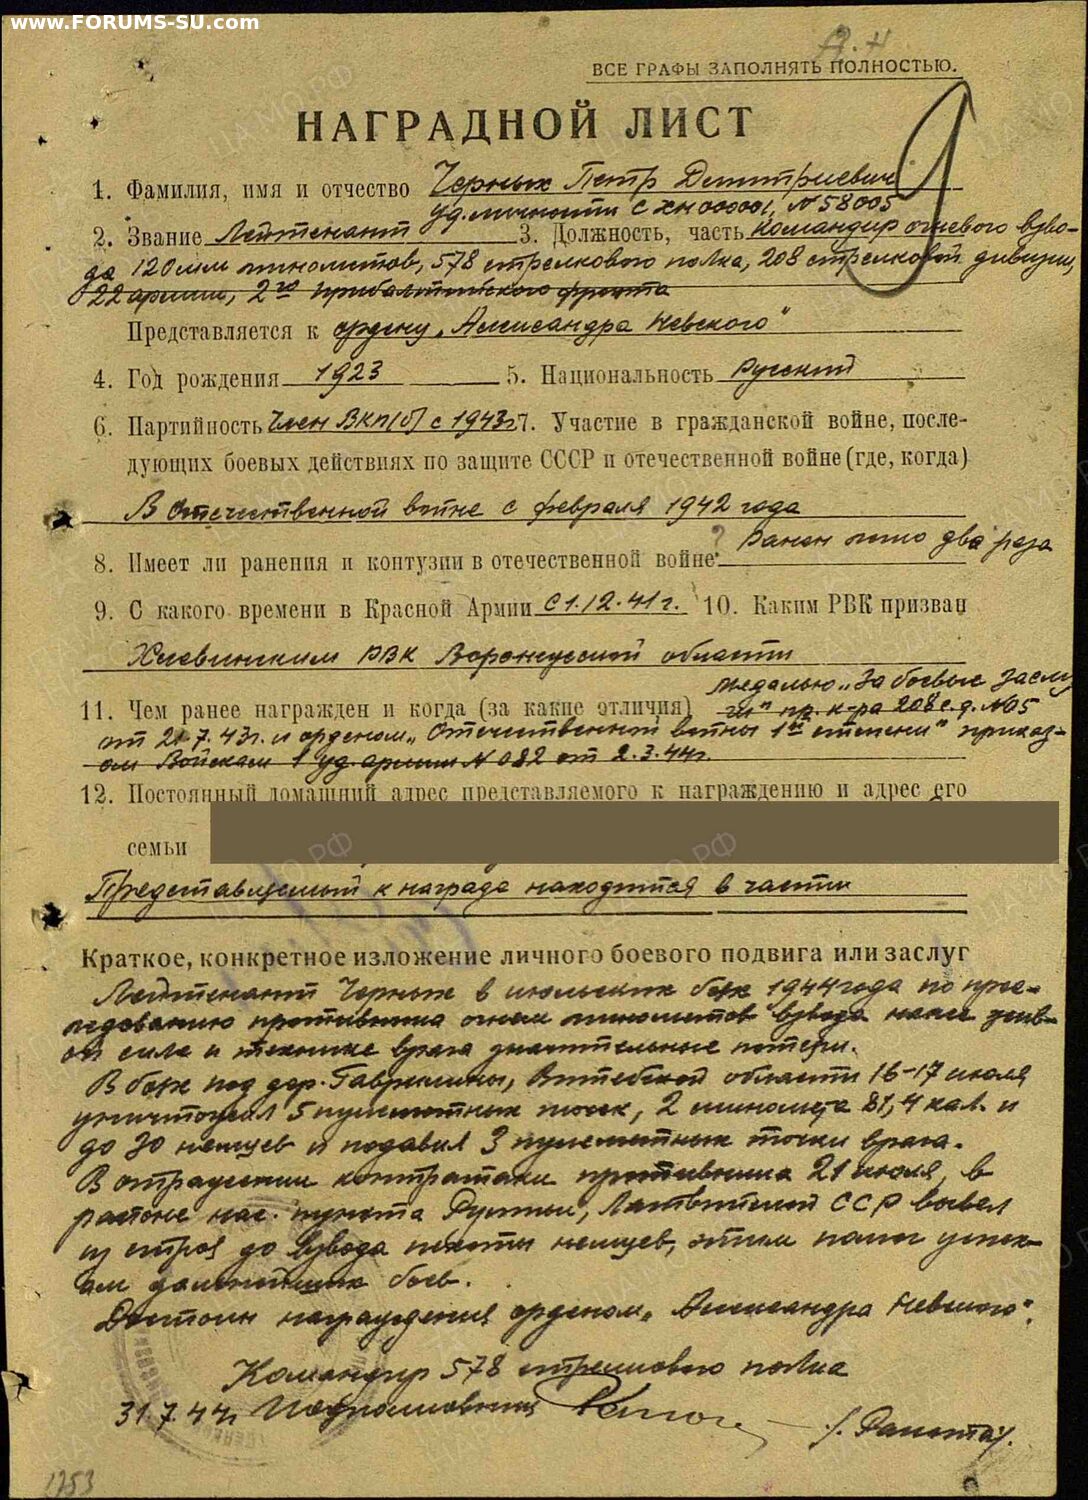 www.FORUMS-SU.com
ВСЕ ГРАФЫ ЗАПОЛНЯТЬ ПОЛНОСТЬЮ.
НАГРАДНОЙ ЛИСТ
1. Фамилия, имя и отчество Черных Петр Дмитриевич
уд. личности с хн 000001, № 58005
2. Звание Лейтенант 3. Должность, часть командир огневого взво-
да 120мм минометов, 578 стрелкового полка, 208 стрелковой дивизии,
22 армии, 2го Прибалтийского фронта
Представляется к ордену „Александра Невского"
4. Год рождения 1923 5. Национальность Русский
6. Партийность Член ВКП(б) с 1943г 7. Участие в гражданской войне, после-
дующих боевых действиях по защите СССР и отечественной войне (где, когда)
В Отечественной войне с февраля 1942 года
8. Имеет ли ранения и контузии в отечественной войне? Ранен легко два раза
9. С какого времени в Красной Армии с 1.12.41г. 10. Каким РВК призван
Хлевинским РВК Воронежской области
11. Чем ранее награжден и когда (за какие отличия) медалью „За боевые заслу
ги" пр. к-ра 208 с.д. №05
от 21.7.43г. и орденом „Отечественной войны 1й степени" приказ-
ом Войскам 1 уд. армии № 082 от 2.3.44г.
12. Постоянный домашний адрес представляемого к награждению и адрес его
семьи
Представляемый к награде находится в части
Краткое, конкретное изложение личного боевого подвига или заслуг
Лейтенант Черных в июльских боях 1944 года по прес-
ледованию противника огнем минометов взвода нанес жив-
ой силе и технике врага значительные потери.
В боях под дер. Гаврилины, Витебской области 16-17 июля
уничтожил 5 пулеметных точек, 2 миномета 81,4 кал. и
до 30 немцев и подавил 3 пулеметных точки врага.
В отражении контратаки противника 21 июля, в
районе нас. пункта Латвийской ССР вывел
из строя до взвода пехоты немцев, этим помог успех-
ам дальнейших боев.
Достоин награждения орденом „Александра Невского".
Командир 578 стрелкового полка
31.7.44г Подполковник
1253